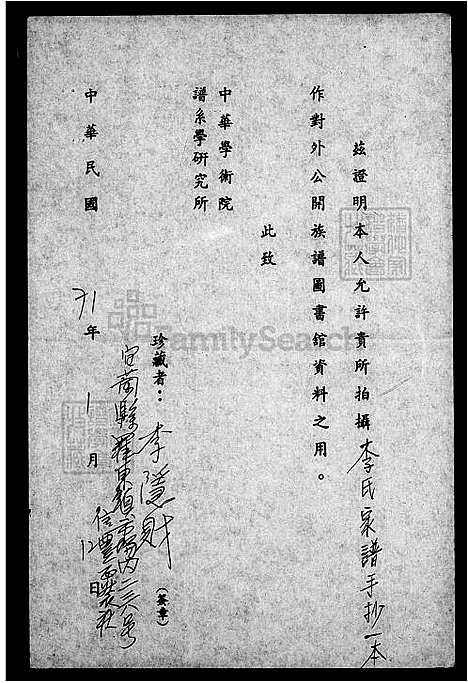 茲證明本人允許貴所拍攝李氏家譜手抄一本
作對外公開族譜圖書館資料之用。
此致
中華學術院
譜系學研究所
珍藏者：李隱財（簽章）
宜蘭縣羅東鎮
中華民國71年1月12日
FamilySearch